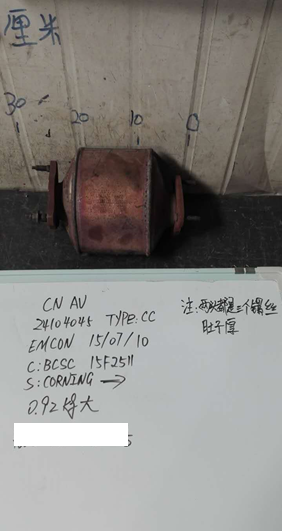 厘米
30 20 10 0
CN AV
24104045 TYPE:CC
EMCON 15/07/10
C:BCSC 15F2511
S:CORNING →
0.92 大
注:两头都是三个螺丝
肚子厚